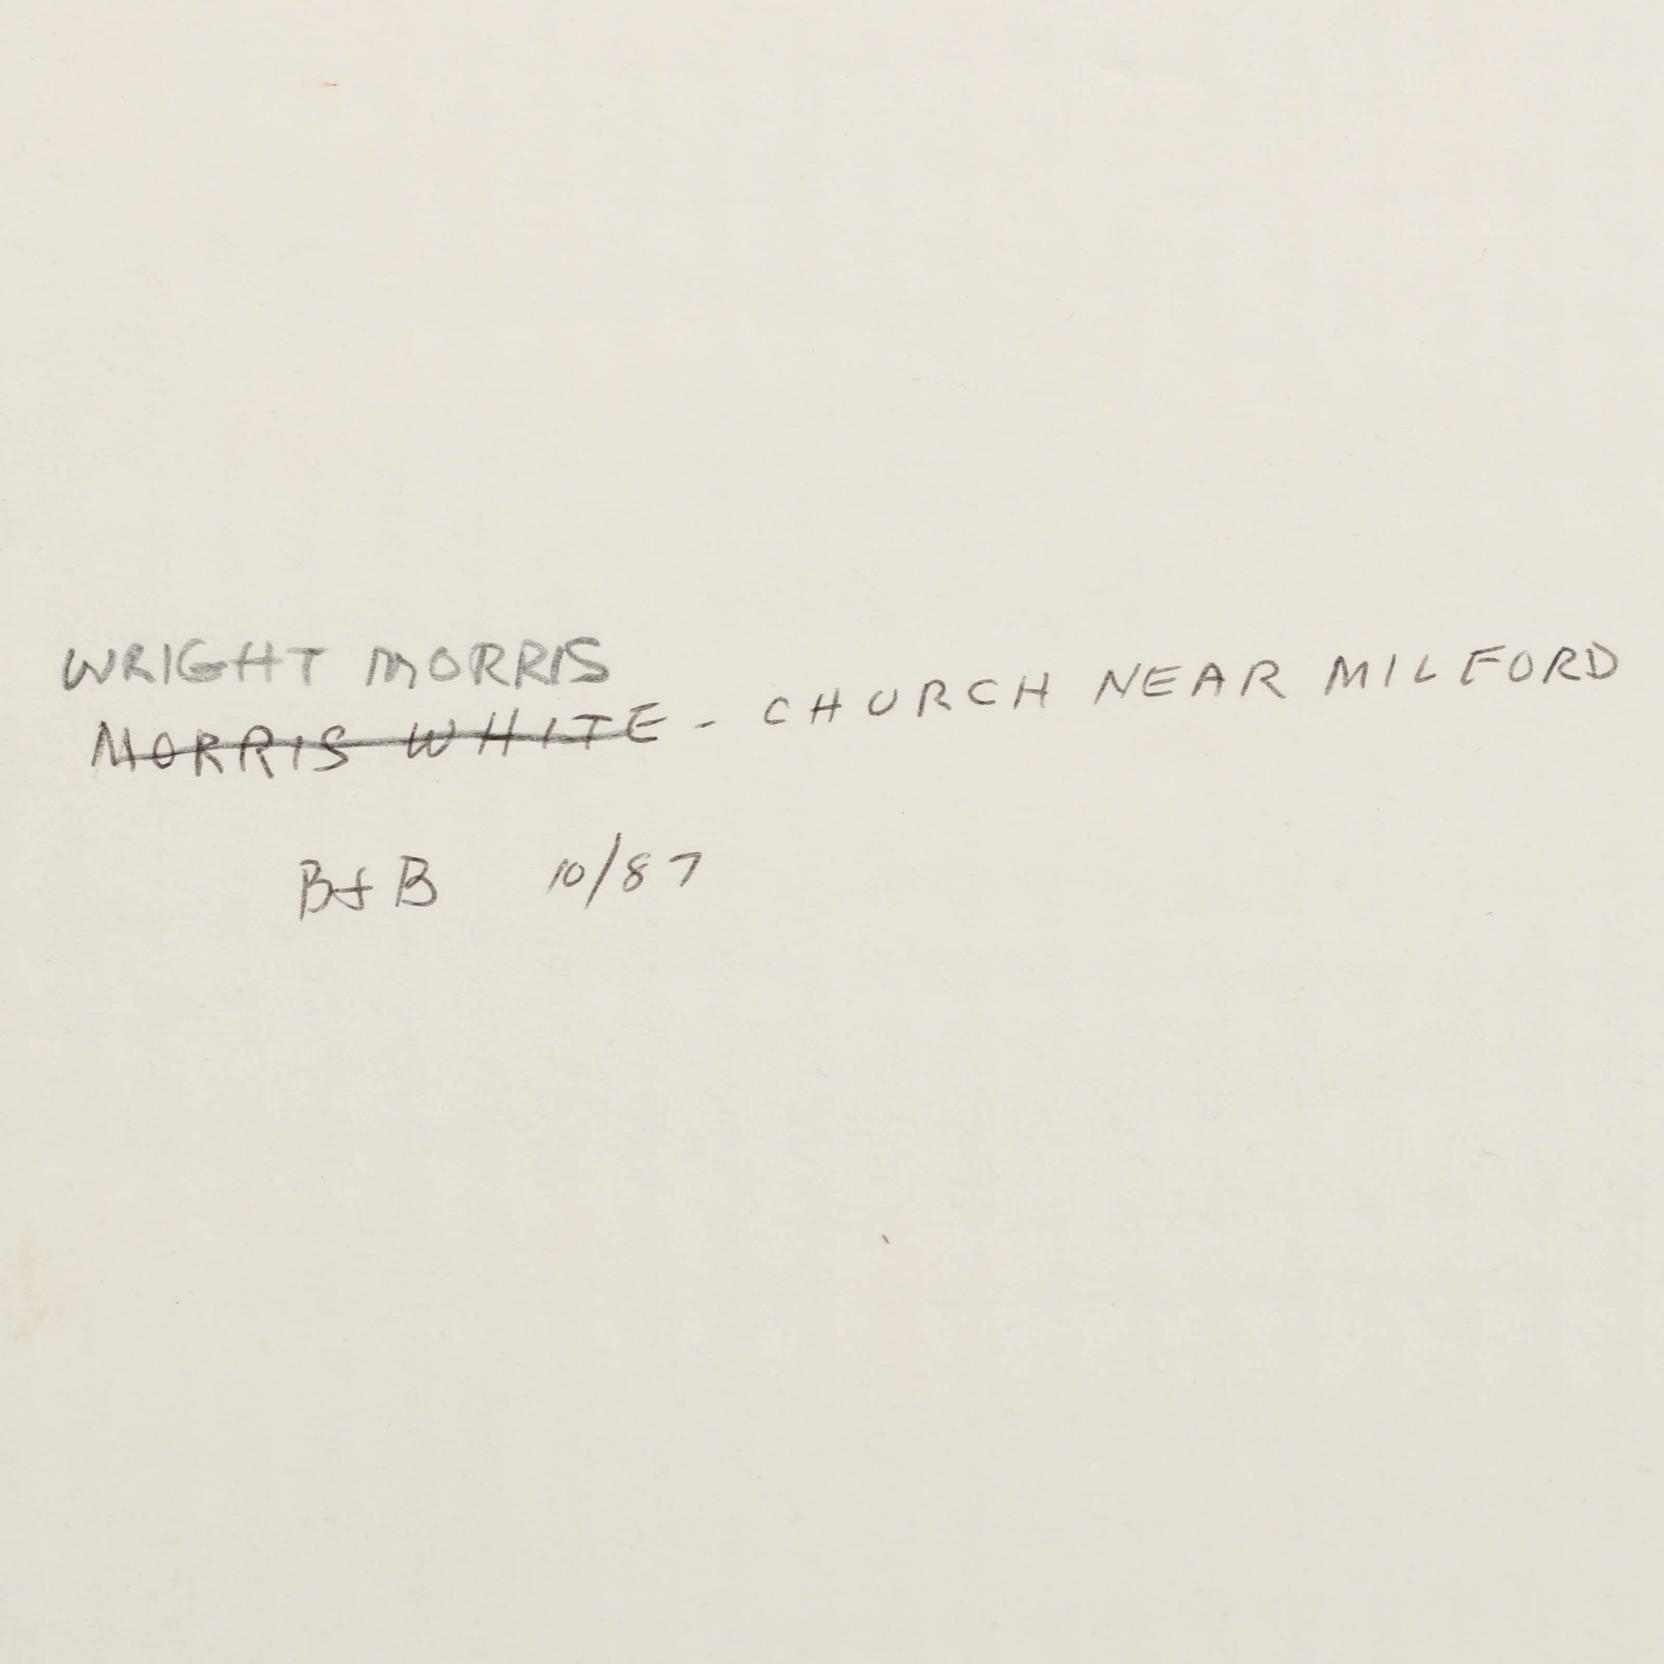 WRIGHT MORRIS
MORRIS WHITE - CHURCH NEAR MILFORD
B & B 10/87